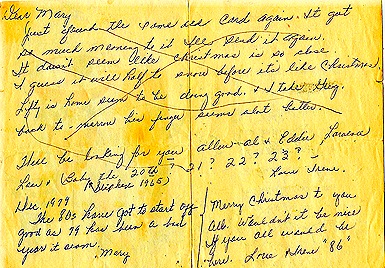 Dear Mary
Just found the same old Card again. It got
so much money to it I'll send it again.
It doesn't seem like Christmas is so close
I guess it will half to snow before it's like Christmas.
is home seem to be doing good. I take
back to his finger seems alot better.
There be looking for you allen - al & Eddie Laraena
Lee & (Baby ete. 20th 21? 22? 23? -
(Stephen 1965) Love Irene.
Dec. 1979
The 80s have got to start off
good as 79 has been a bad
year it seem.
Mary
Merry Christmas to you
All. Wouldn't it be nice
if you all would be
here. Love Irene "86"